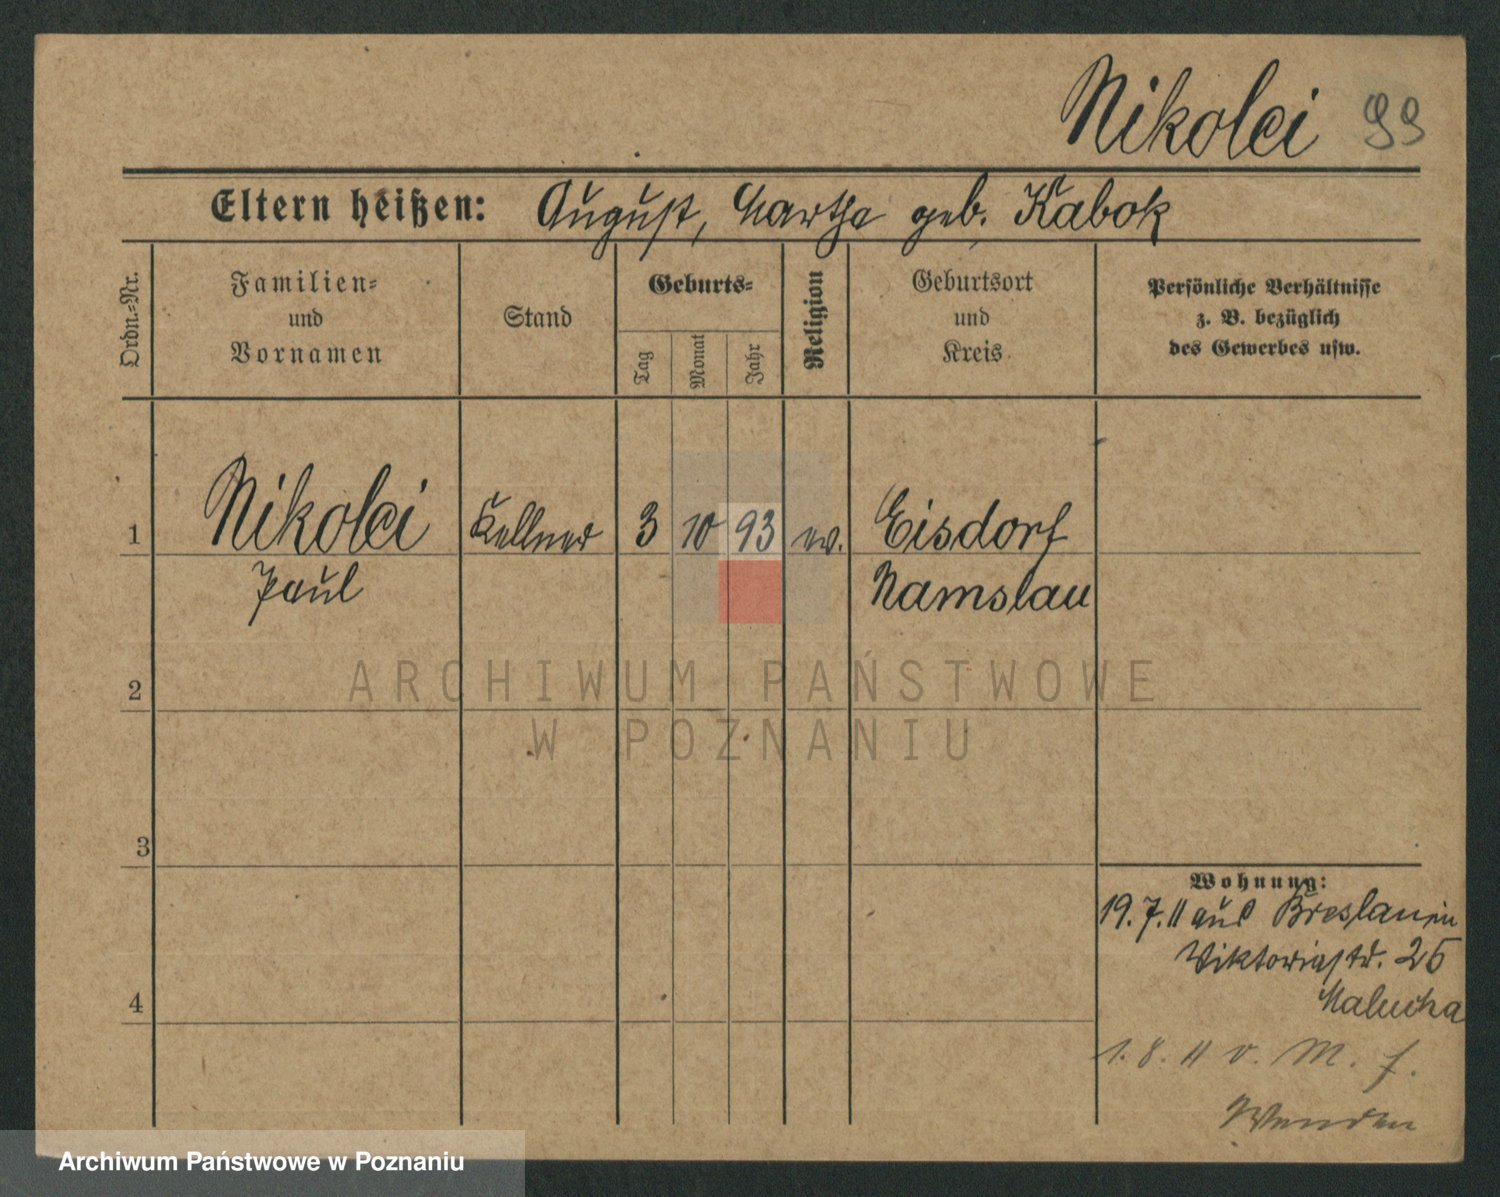 Nikolei 99
Eltern heißen: August, Martha geb. Kabok
Ordn.-Nr.
Familien-
und
Vornamen
Stand
Geburts-
Tag
Monat
Jahr
Religion
Geburtsort
und
Kreis
Persönliche Verhältnisse
z. B. bezüglich
des Gewerbes usw.
1 Nikolei Kellner 3 10 93 ev. Eisdorf
Paul Namslau
2
ARCHIWUM PAŃSTWOWE
W POZNANIU
3
Wohnung:
19.7.11 aus Breslau in
Viktoriastr. 25
Malucha
4
1. 8. 11 v. M. f.
Wenden
Archiwum Państwowe w Poznaniu